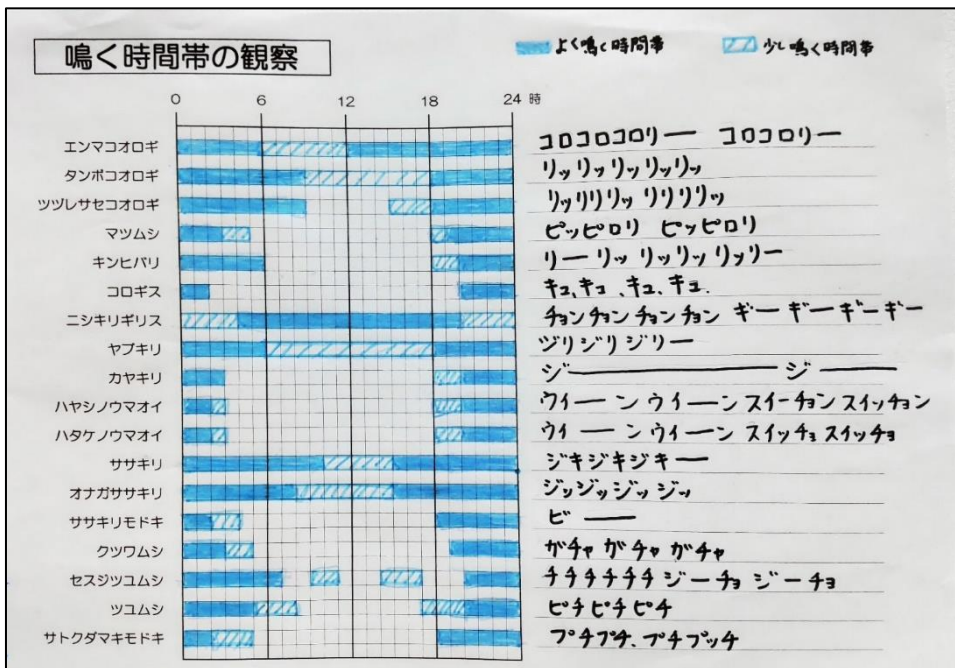 鳴く時間帯の観察
よく鳴く時間帯 少し鳴く時間帯
0 6 12 18 24 時
エンマコオロギ コロコロコロリー コロコロリー
タンボコオロギ リッリッリッリッリッ
ツヅレサセコオロギ リッリリリッ リリリリッ
マツムシ ピッピロリ ピッピロリ
キンヒバリ リー リッ リッリッ リッリー
コロギス キュ、キュ、キュ、キュ.
ニシキリギリス チョンチョンチョンチョン ギー ギー ギーギー
ヤブキリ ヅリジリジリー
カヤキリ ジー ジー
ハヤシノウマオイ ウイーン ウイーン スイーチョン スイッチョン
ハタケノウマオイ ウイーン ウイーン スイッチョ スイッチョ
ササキリ ジキジキジキー
オナガササキリ ジッジッジッ ジッ
ササキリモドキ ビー
クツワムシ ガチャ ガチャ ガチャ
セスジツユムシ チチチチチチ ジーチョ ジーチョ
ツユムシ ピチピチピチ
サトクダマキモドキ プチプチ、プチプッチ